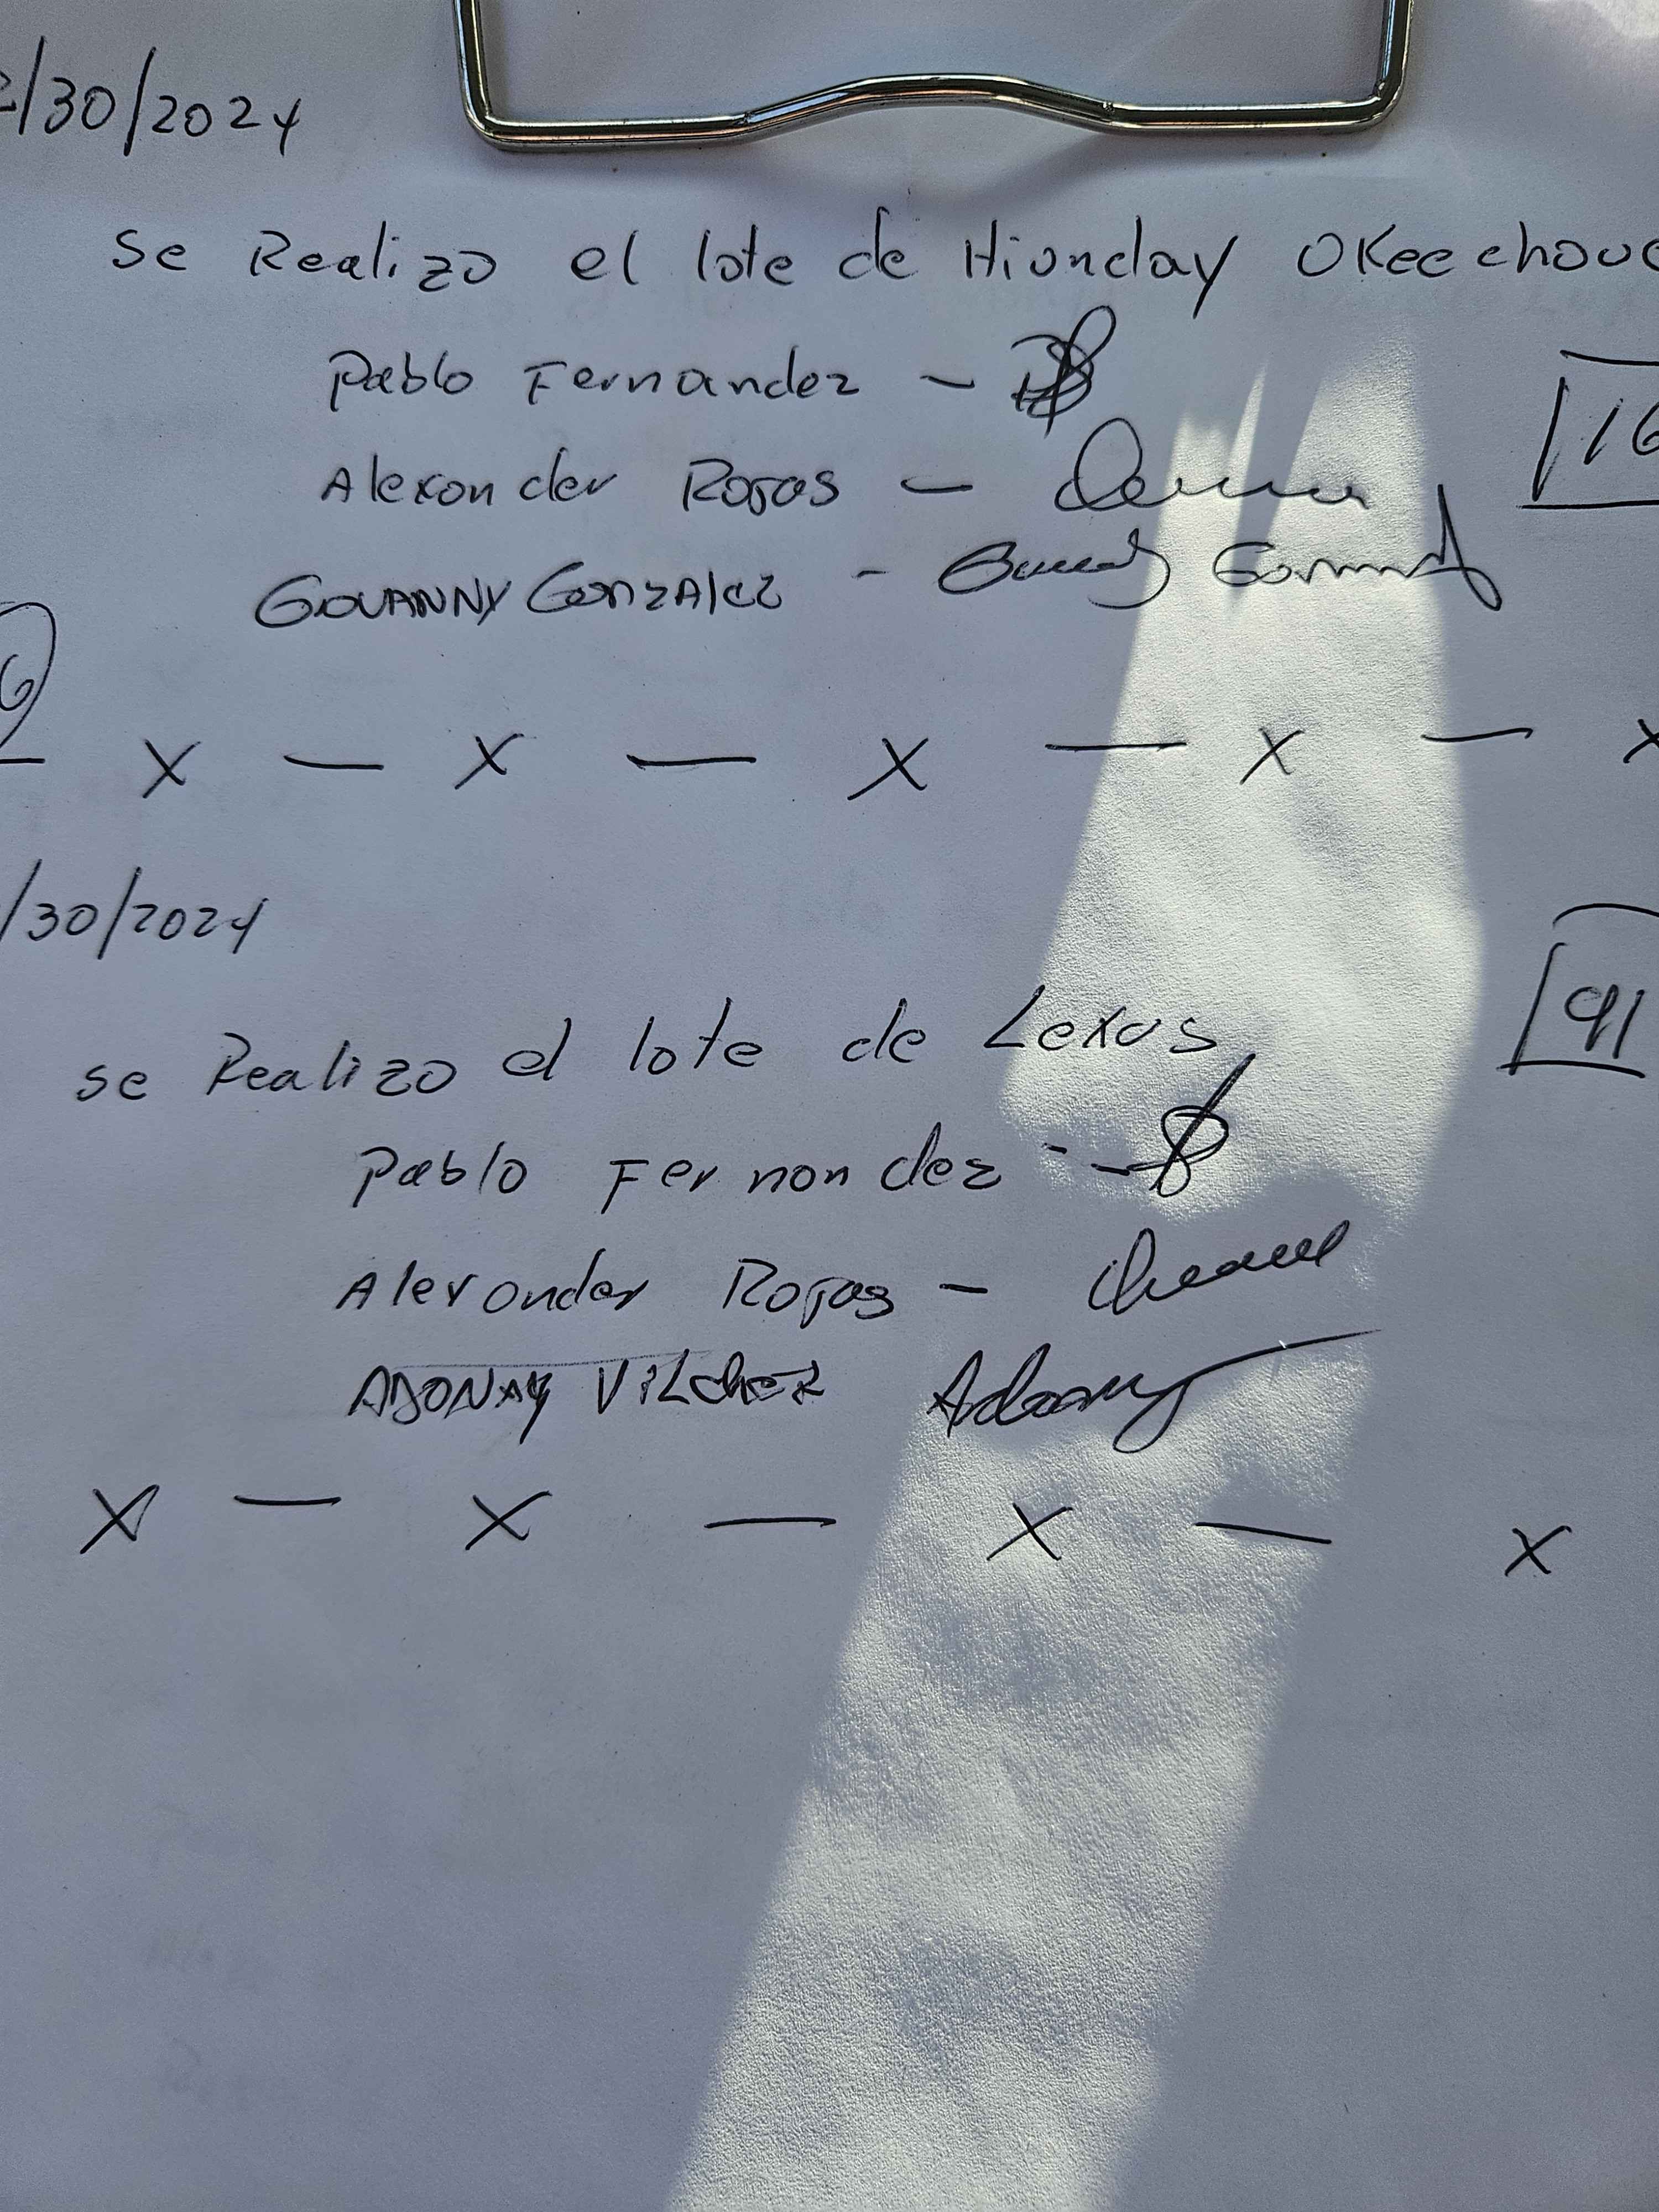 2/30/2024
se Realizo el lote de Hionday Okeechouc
Pablo Fernandez -
16
Alexander Rojas -
Giovanny Gonzalez -
x - x - x - x - x
/30/2024
91
se Realizo el lote de Lexus
Pablo Fernandez -
Alexander Rojas -
ADONAY Vilchez Adonay
x - x - x - x